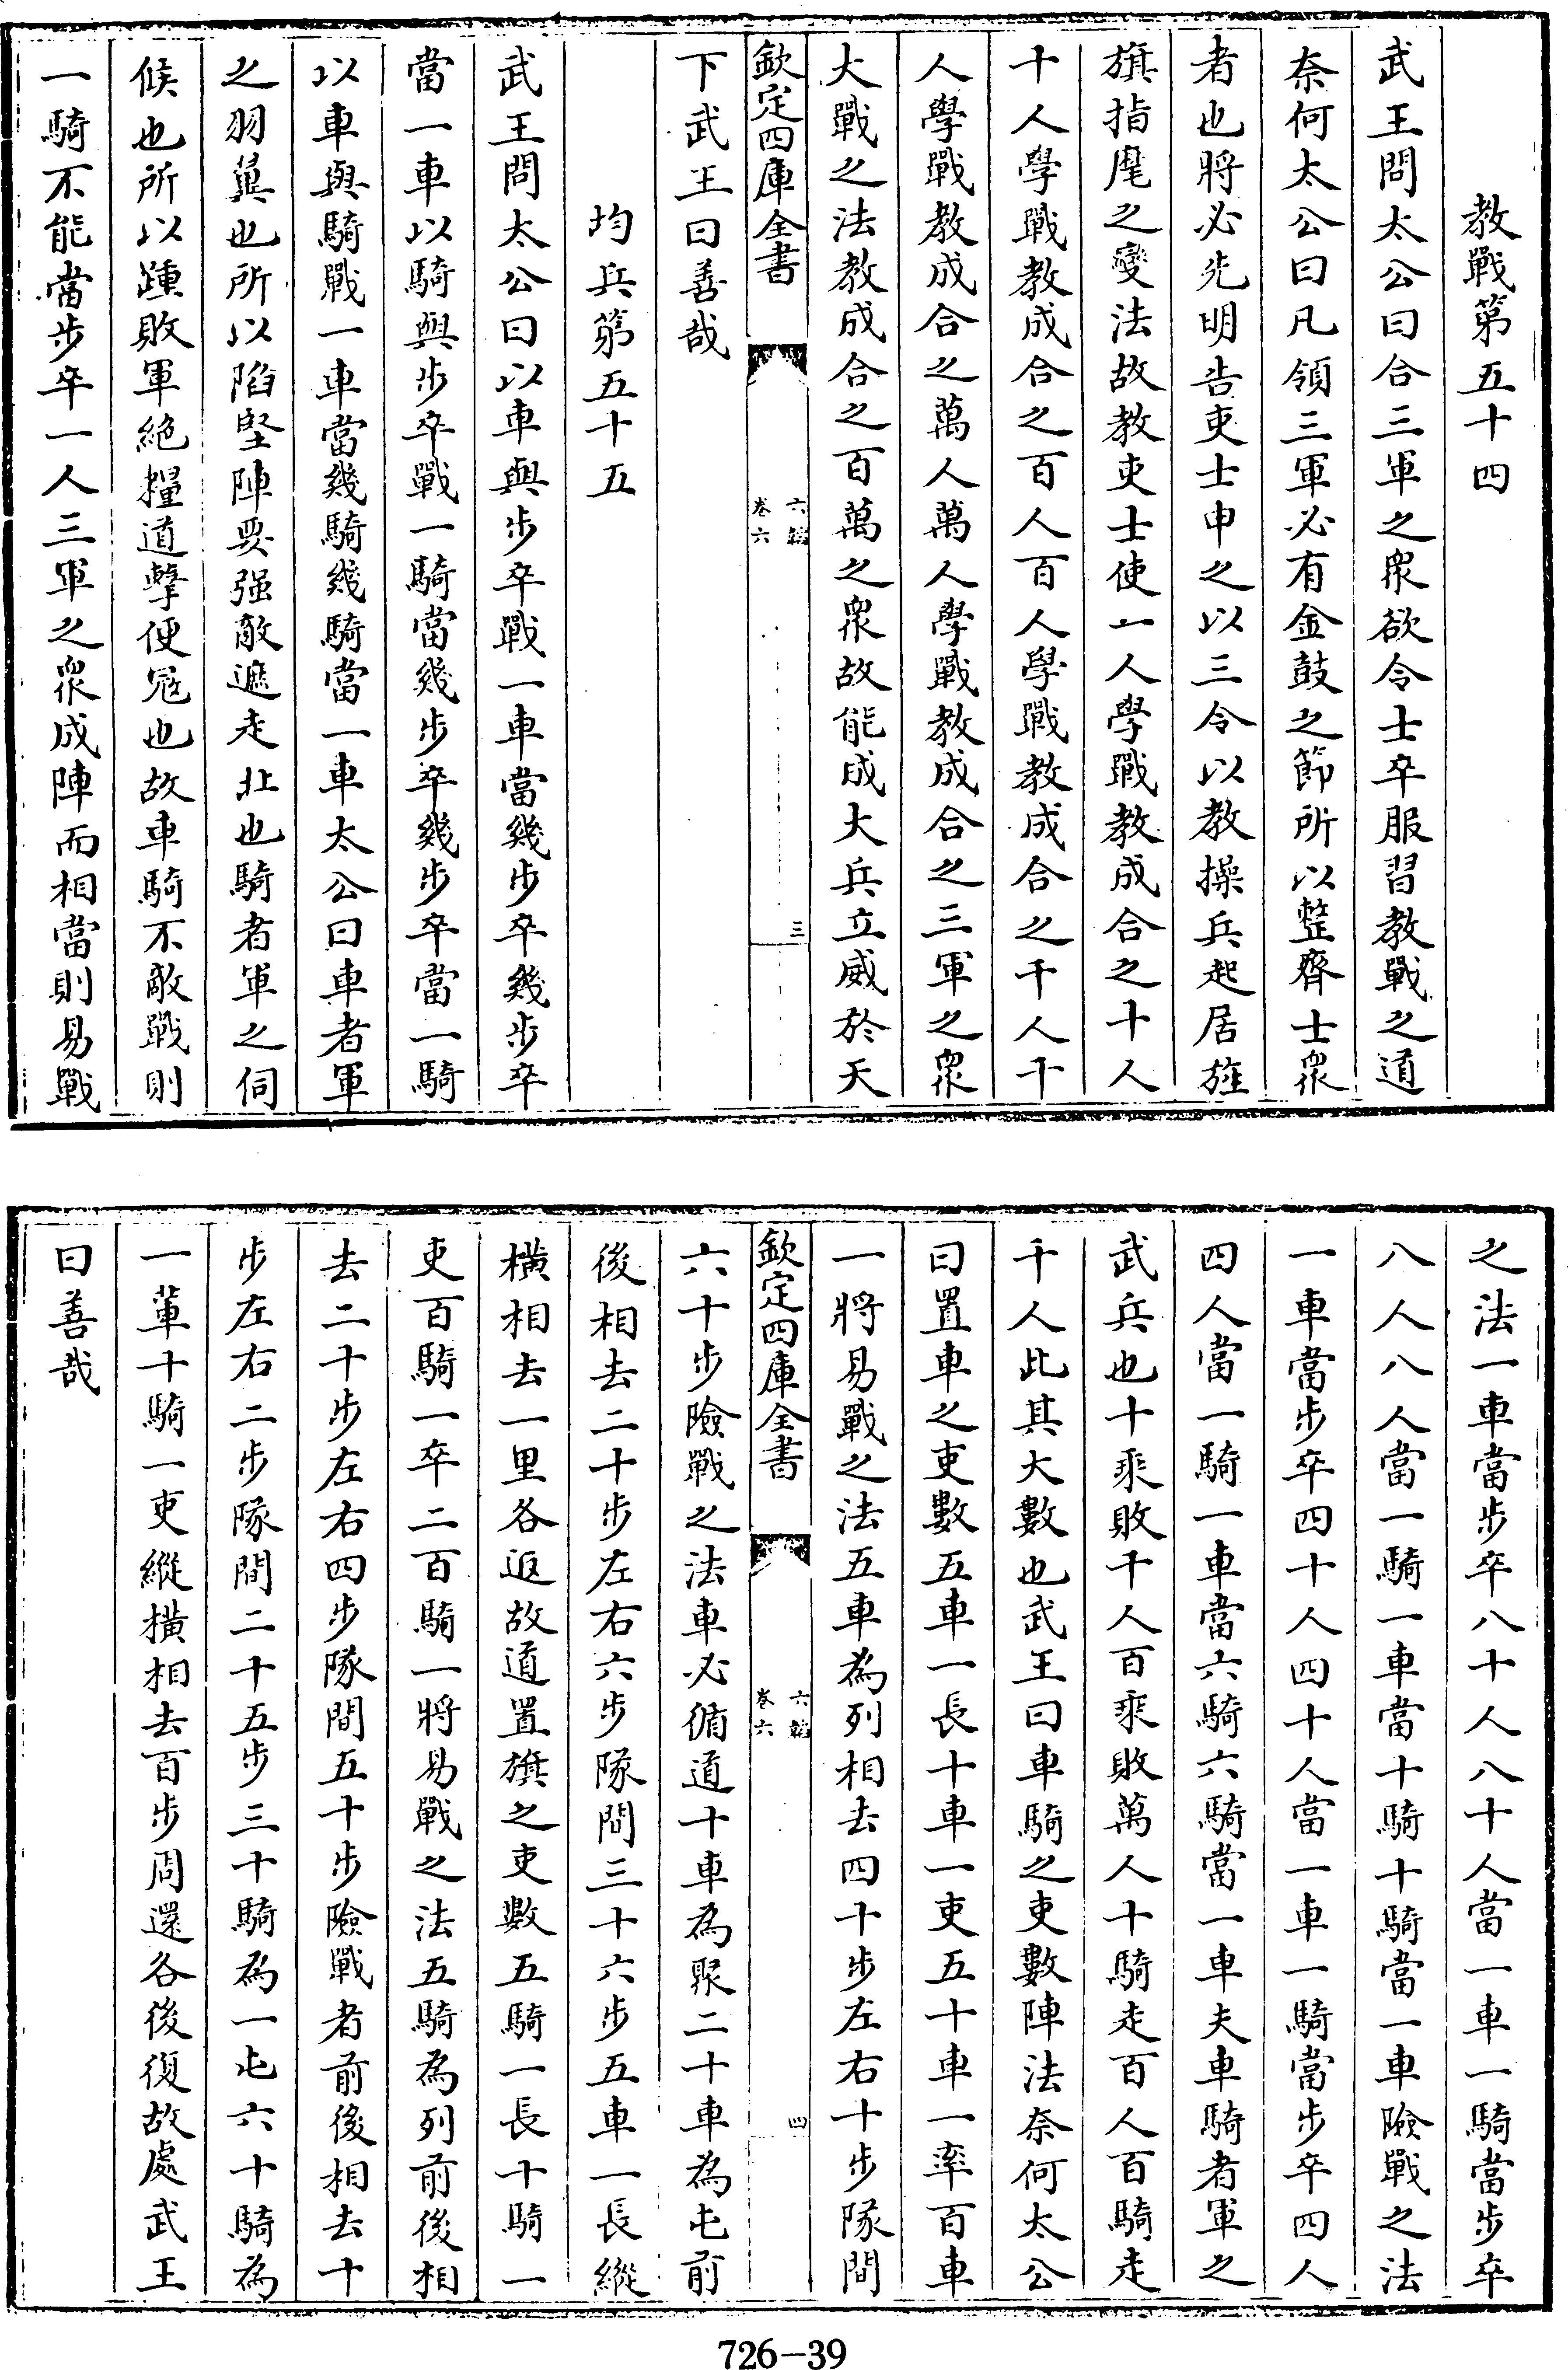 教戰第五十四
武王問太公曰合三軍之衆欲令士卒服習教戰之道
奈何太公曰凡領三軍必有金鼓之節所以整齊士衆
者也將必先明告吏士申之以三令以教操兵起居旌
旗指麾之變法故教吏士使一人學戰教成合之十人
十人學戰教成合之百人百人學戰教成合之千人千
人學戰教成合之萬人萬人學戰教成合之三軍之衆
大戰之法教成合之百萬之衆故能成大兵立威於天
欽定四庫全書
六韜
卷六
三
下武王曰善哉
均兵第五十五
武王問太公曰以車與步卒戰一車當幾步卒幾步卒
當一車以騎與步卒戰一騎當幾步卒幾步卒當一騎
以車與騎戰一車當幾騎幾騎當一車太公曰車者軍
之羽翼也所以陷堅陣要强敵遮走北也騎者軍之伺
候也所以踵敗軍絶糧道擊便冦也故車騎不敵戰則
一騎不能當步卒一人三軍之衆成陣而相當則易戰
之法一車當步卒八十人八十人當一車一騎當步卒
八人八人當一騎一車當十騎十騎當一車險戰之法
一車當步卒四十人四十人當一車一騎當步卒四人
四人當一騎一車當六騎六騎當一車夫車騎者軍之
武兵也十乘敗千人百乘敗萬人十騎走百人百騎走
千人此其大數也武王曰車騎之吏數陣法奈何太公
曰置車之吏數五車一長十車一吏五十車一率百車
一將易戰之法五車為列相去四十步左右十步隊間
欽定四庫全書
六韜
卷六
四
六十步險戰之法車必循道十車為聚二十車為屯前
後相去二十步左右六步隊間三十六步五車一長縱
横相去一里各返故道置旗之吏數五騎一長十騎一
吏百騎一卒二百騎一將易戰之法五騎為列前後相
去二十步左右四步隊間五十步險戰者前後相去十
步左右二步隊間二十五步三十騎為一屯六十騎為
一輩十騎一吏縱横相去百步周還各後復故處武王
曰善哉
726-39